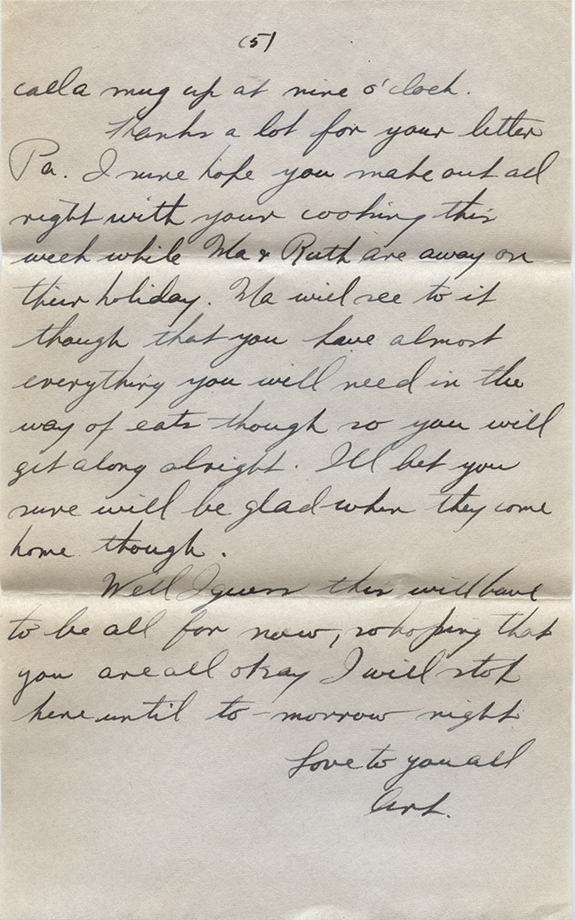 (5)
call a mug up at nine o'clock.
Thanks a lot for your letter
Pa. I sure hope you make out all
right with your cooking this
week while Ma & Ruth are away on
their holiday. Ma will see to it
though that you have almost
everything you will need in the
way of eats though so you will
get along alright. I'll bet you
sure will be glad when they come
home though.
Well I guess this will have
to be all for now, so hoping that
you are all okay I will stop
here until to-morrow night.
Love to you all
Art.